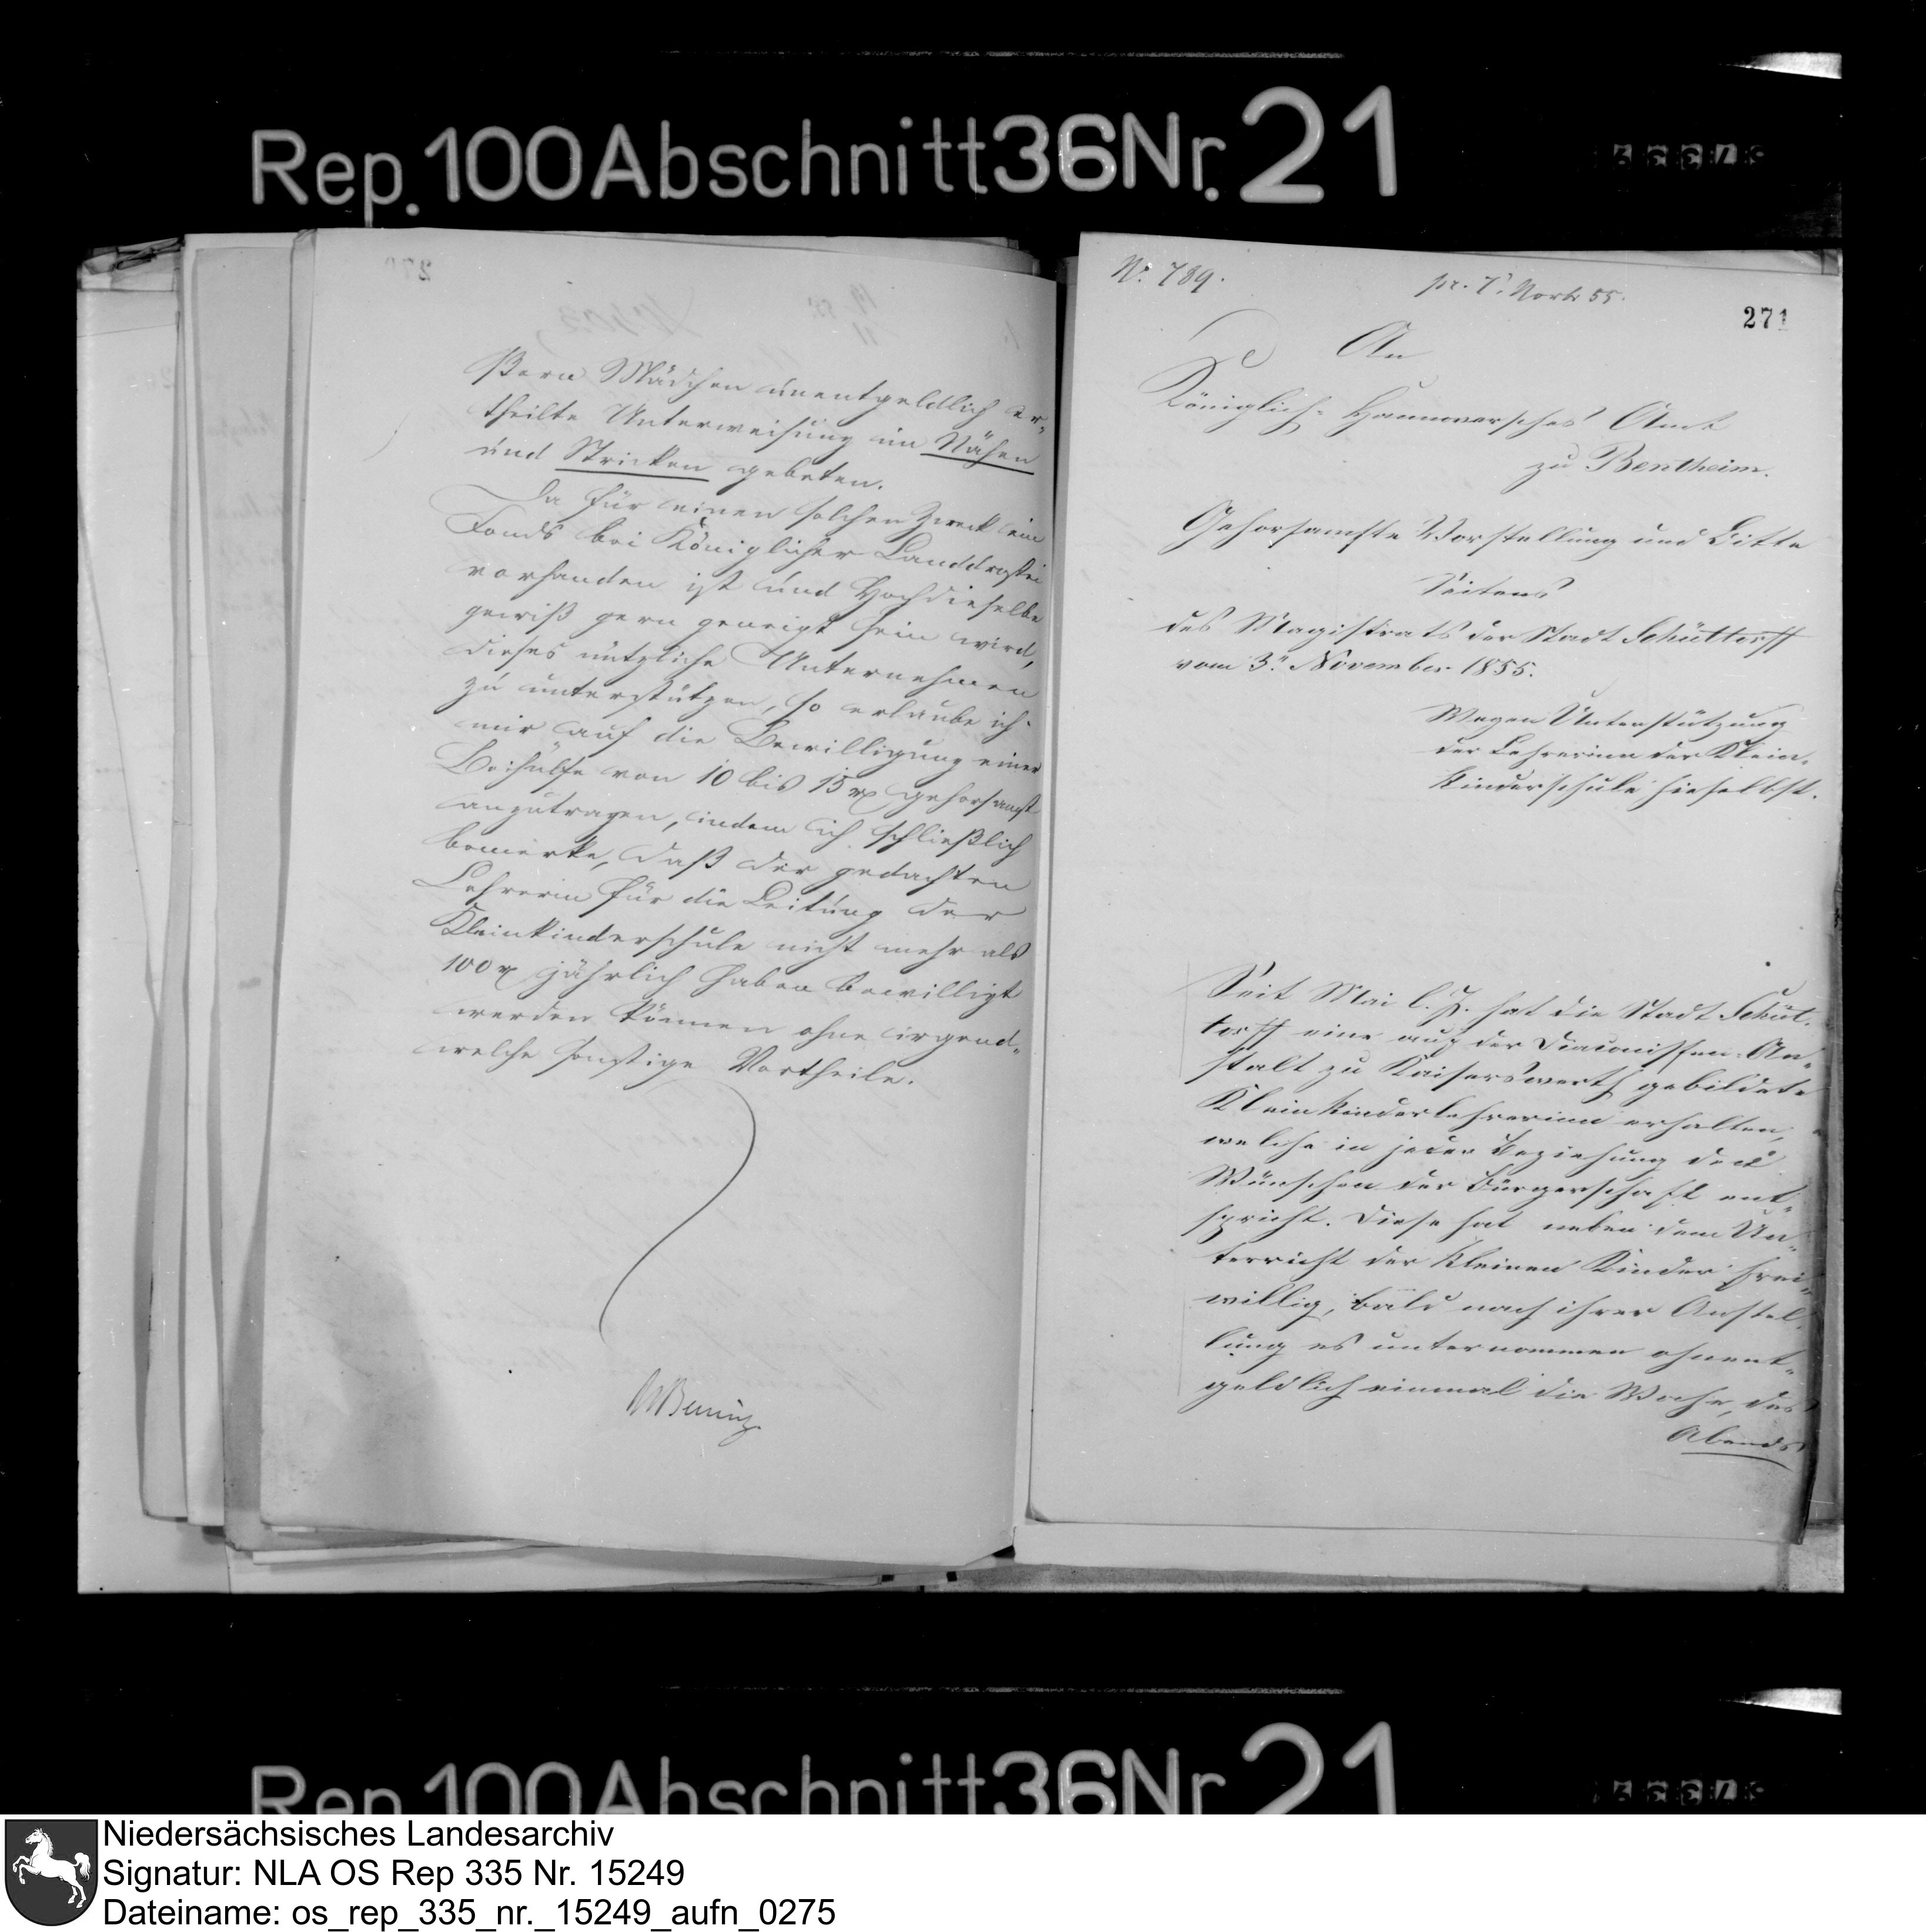 Rep. 100 Abschnitt 36 Nr. 21
ßern Mädchen unentgeldlich er„
theilte Unterweisung im Nähen
und Stricken gebeten.
Da für einen solchen Zweck ein
Fonds bei Königlicher Landdrostei
vorhanden ist und Hochdieselbe
gewiß gern geneigt sein wird,
dieses nützliche Unternehmen
zu unterstützen, so erlaube ich
mir auf die Bewilligung einer
Beihülfe von 10 bis 15 rp gehorsamst
anzutragen, indem ich schließlich
bemerke, daß der gedachten
Lehrerin für die Leitung der
Kleinkinderschule nicht mehr als
100 rp jährlich haben bewilligt
werden können ohne irgend„
welche sonstige Vortheile.
N. 789.
pr. 7. Novbr 55.
271
An
Königlich-Hannoversches Amt
zu Bentheim.
Gehorsamste Vorstellung und Bitte
Seitens
des Magistrats der Stadt Schüttorff
vom 3. November 1855.
Wegen Unterstützung
der Lehrerinn der Klein-
kinderschule hieselbst.
Seit Mai l. J. hat die Stadt Schüt-
torff eine auf der Diaconissen-An„
stalt zu Kaiserswerth gebildete
Kleinkinderlehrerinn erhalten,
welche in jeder Beziehung den
Wünschen der Bürgerschaft ent„
spricht. Diese hat neben dem Un„
terricht der kleinen Kinder frei„
willig, bald nach ihrer Anstel-
lung es unternommen ohnent„
geldlich einmal die Woche, des
Abends
Rep. 100 Abschnitt 36 Nr. 21
Niedersächsisches Landesarchiv
Signatur: NLA OS Rep 335 Nr. 15249
Dateiname: os_rep_335_nr._15249_aufn_0275